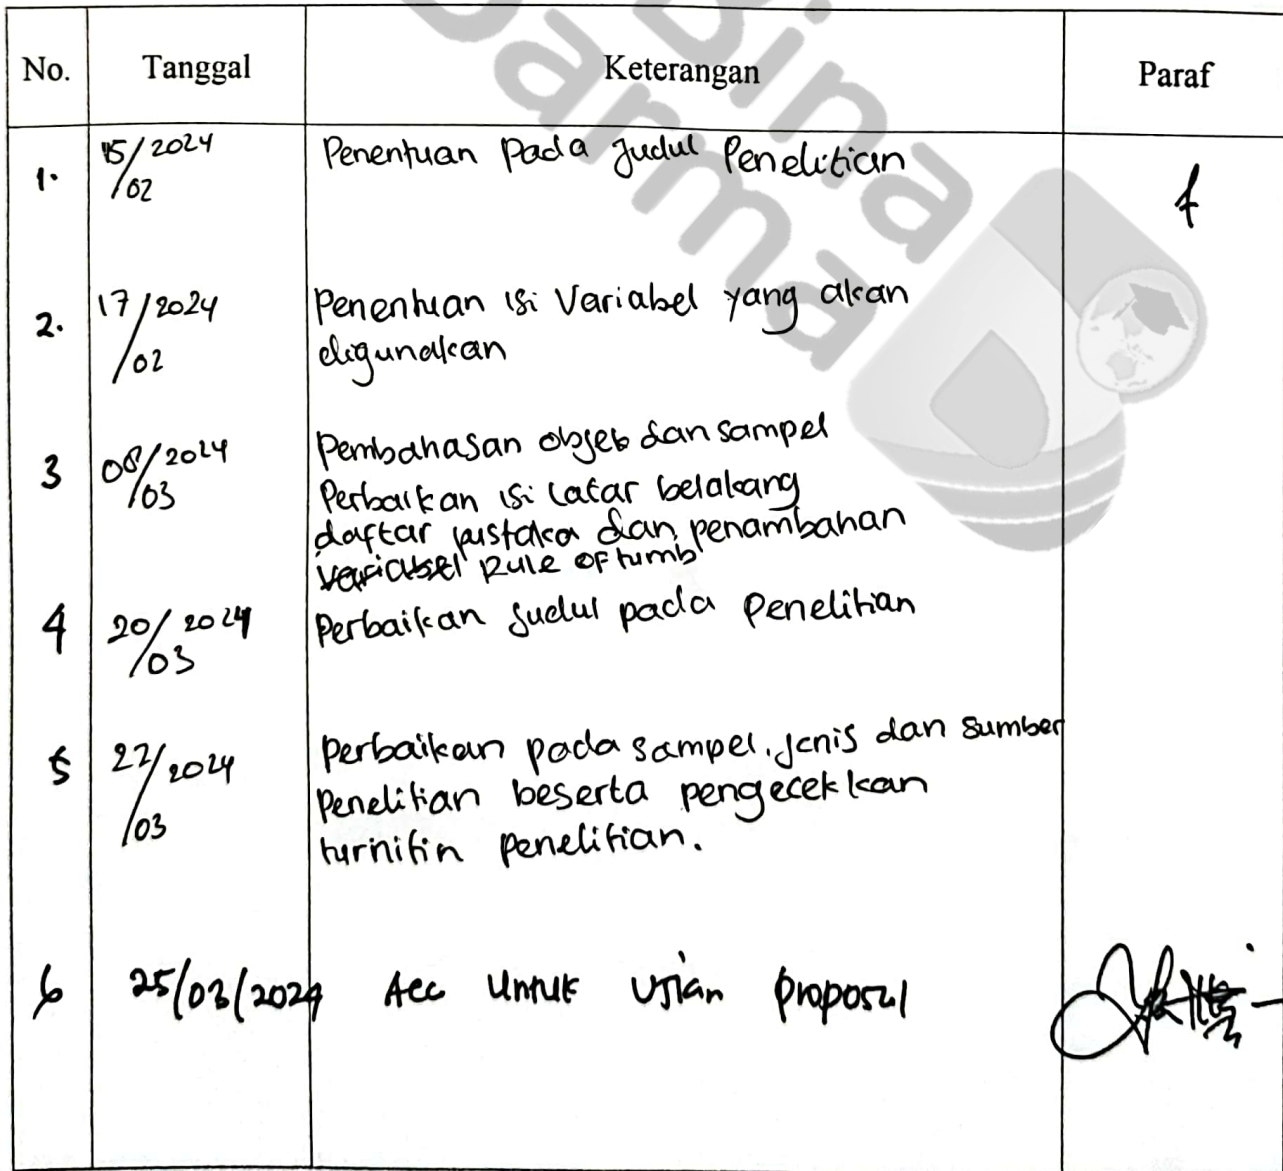 Bina
Darma
No. Tanggal Keterangan Paraf
1. 15/02/2024 Penentuan Pada Judul Penelitian
2. 17/02/2024 Penentuan isi Variabel yang akan
digunakan
3 08/03/2024 Pembahasan objek dan sampel
Perbaikan isi latar belakang
daftar pustaka dan penambahan
variabel Rule of tumb
4 20/03/2024 Perbaikan Judul pada Penelitian
5 22/03/2024 perbaikan pada sampel, jenis dan sumber
Penelitian beserta pengecekkan
turnitin penelitian.
6 25/03/2024 Acc Untuk Ujian proposal